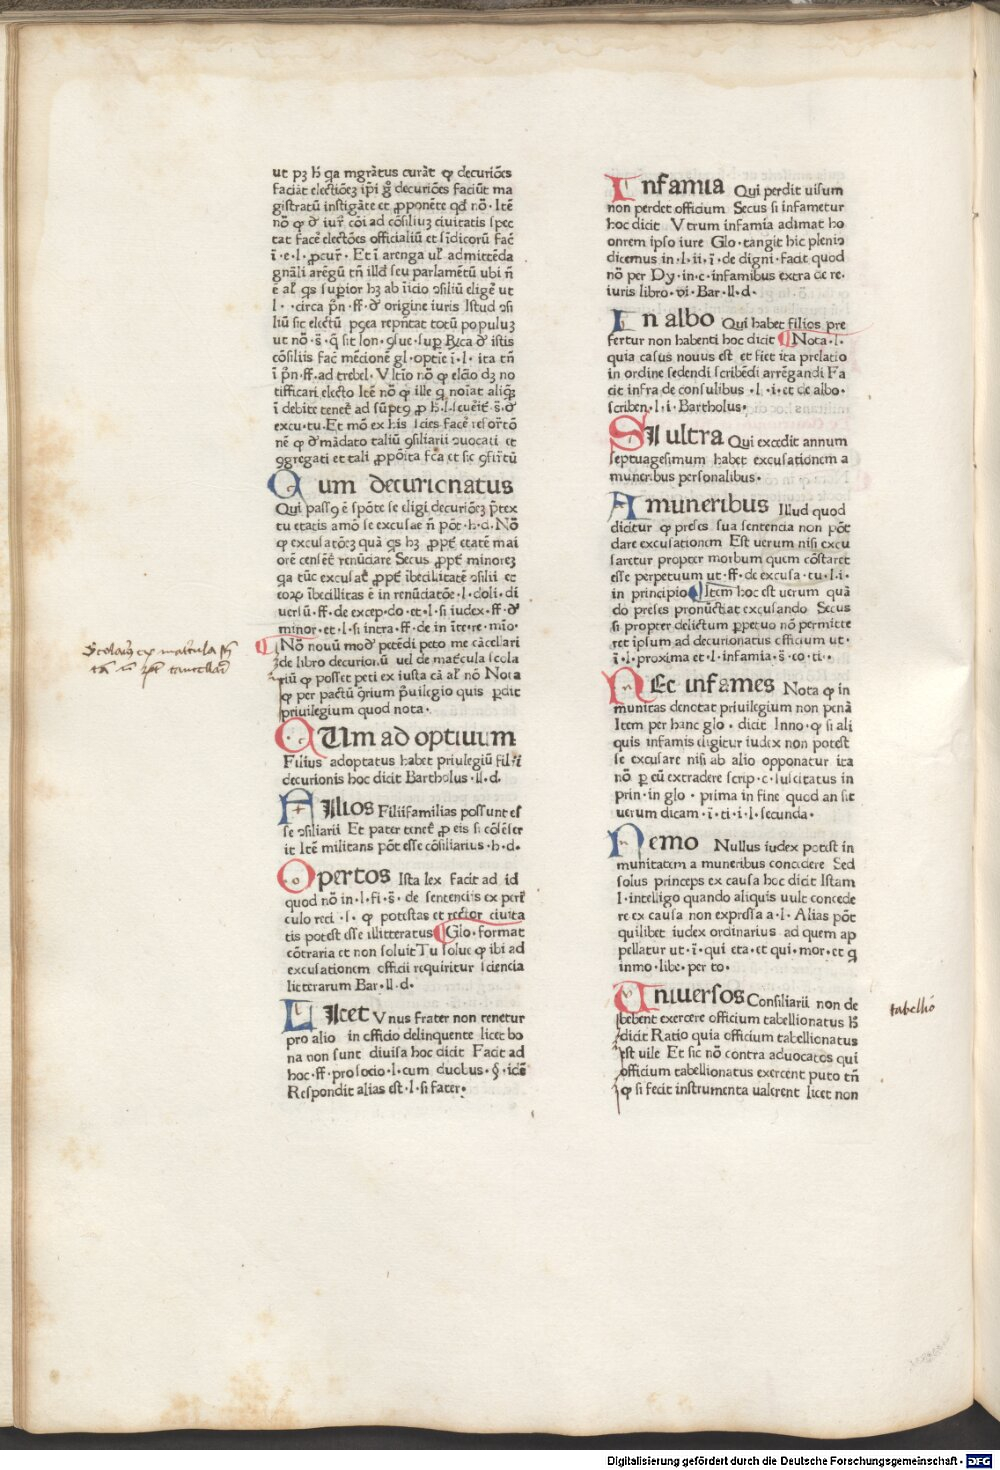 ut pꝫ h̄ qa mg̃ratus curãt ꝙ decuriões
faciãt electiõeꝫ ip̃i g̊ decuriões faciũt ma
gistratũ instigãte et ꝓponẽte qđ nõ· Itẽ
nõ ꝙ đ iur̃ cõi ad cõsiliuꝫ ciuitatis spec
tat facẽ electões officialiũ et sĩdicorũ fac̃
ĩ·e·l·ꝓcur̃· Et ĩ arenga ul̃ admittẽda
gñali arẽgũ tñ illđ seu parlamẽtũ ubi ñ
ẽ al̃ qs supior hꝫ ab iĩcio ↄsiliũ eligẽ ut
l··circa pñ·ff·đ origine iuris Istud ↄsi
liũ sic electũ pꝯea repñtat totũ populuꝫ
cõsiliis fac̃ mẽcionẽ gl·optĩe ĩ·l·ita tñ
ĩ pñ·ff·ad trebel·Vltĩo nõ ꝙ elcĩo dꝫ no
tifficari electo Itẽ nõ ꝙ ille q noĩat aliq̃ꝫ
nẽ ꝙ đ mãdato taliũ ꝯsiliarii ↄuocati et
ꝯgregati et tali ꝓpõita fc̃a et sic ꝯfir̃tũ
Cum decurionatus
Qui passꝯ ẽ spõte se eligi decuriõeꝫ p̃tex
tu etatis amõ se excusae ñ põt·h·d·Nõ
ꝙ excusatõeꝫ quã qs hꝫ ꝓpt̃ etatẽ mai
orẽ censet̃ renũciare Secus ꝓpt̃ minoreꝫ
qa tũc excusat̃ ꝓpt̃ ĩbecillitatẽ ↄsilii et
eoꝝ ĩbecillitas ẽ in renũciatõe·l·doli·di
uersũ·ff·de excep·do·et·l·si iudex·ff·đ
minor·et·l·si intra·ff·de in ĩte·re·mĩo·
Nõ nouũ mođ petẽdi peto me cãcellari
de libro decurionũ uel de matĩcula scola
riũ ꝙ posset peti ex iusta cã al̃ nõ Nota
ꝙ per pactũ ꝯrium p̃uilegio quis ꝑdit
priuilegium quod nota·
QUm ad optiuum
Filius adoptatus habet priulegiũ filii
decurionis hoc dicit Bartholus·ll·d·
FIlios Filiifamilias possunt es
se ↄsiliarii Et pater tenet̃ ꝓ eis si cõsẽser
it Itẽ militans põt esse cõsiliarius·h·d·
Opertos Ista lex facit ad id
quod nõ in·l·fi·s̃·de sentenciis ex peri
culo reci·l·ꝙ potestas et rector ciuita
tis potest esse illitteratus Glo·format
cõtraria et non soluit Tu solue ꝙ ibi ad
excusationem officii requiritur sciencia
litterarum Bar·ll·d·
LIcet Vnus frater non tenetur
pro alio in officio delinquente licet bo
na non sunt diuisa hoc dicit Facit ad
hoc·ff·pro socio·l·cum duobus·§·idẽ
Respondit alias est·l·si fater·
Infamia Qui perdit uisum
non perdet officium Secus si infametur
hoc dicit Vtrum infamia adimat ho
onrem ipso iure Glo·tangit hic pleniꝯ
dicemus in·l·ii·ĩ·de digni·facit quod
nõ per Dy·in·c·infamibus extra de re·
iuris libro·vi·Bar·ll·d·
In albo Qui habet filios pre
fertur non habenti hoc dicit Nota·l·
quia casus nouus est et fiet ita prelatio
in ordine sedendi scribẽdi arrẽgandi Fa
cit infra de consulibus·l·i·et de albo·
scriben·l·i·Bartholus·
SI ultra Qui excedit annum
septuagesimum habet excusationem a
muneribus personalibus·
A muneribus Illud quod
dicitur ꝙ preses sua sentencia non põt
dare excusationem Est uerum nisi excu
saretur propter morbum quem cõstaret
esse perpetuum ut·ff·de excusa·tu·l·i·
in principio Item hoc est uerum quã
do preses pronũctiat excusando Secus
si propter delictum ꝑpetuo nõ permitte
ret ipsum ad decurionatus officium ut·
ĩ·l·proxima et·l·infamia·s̃·co·ti·
NEc infames Nota ꝙ in
munitas denotat priuilegium non penã
Item per hanc glo·dicit Inno·ꝙ si ali
quis infamis eligitur iudex non potest
se excusare nisi ab alio opponatur ita
nõ ꝑ eũ extradere scrip·c·suscitatus in
prin·in glo·prima in fine quod an sit
uerum dicam·ĩ·ti·i·l·secunda·
Nemo Nullus iudex potest in
munitatem a muneribus concedere Sed
solus princeps ex causa hoc dicit Istam
l·intelligo quando aliquis uult concede
re ex causa non expressa a·l·Alias põt
quilibet iudex ordinarius ad quem ap
pellatur ut·ĩ·qui eta·et qui·mor·et q
inmo·libe·per to·
Vniuersos Consiliarii non de
bebent exercere officium tabellionatus h̄
dicit Ratio quia officium tabellionatus
est uile Et sic nõ contra aduocatos qui
officium tabellionatus exercent puto tñ
ꝙ si fecit instrumenta ualerent licet non
tabellio
Digitalisierung gefördert durch die Deutsche Forschungsgemeinschaft - DFG